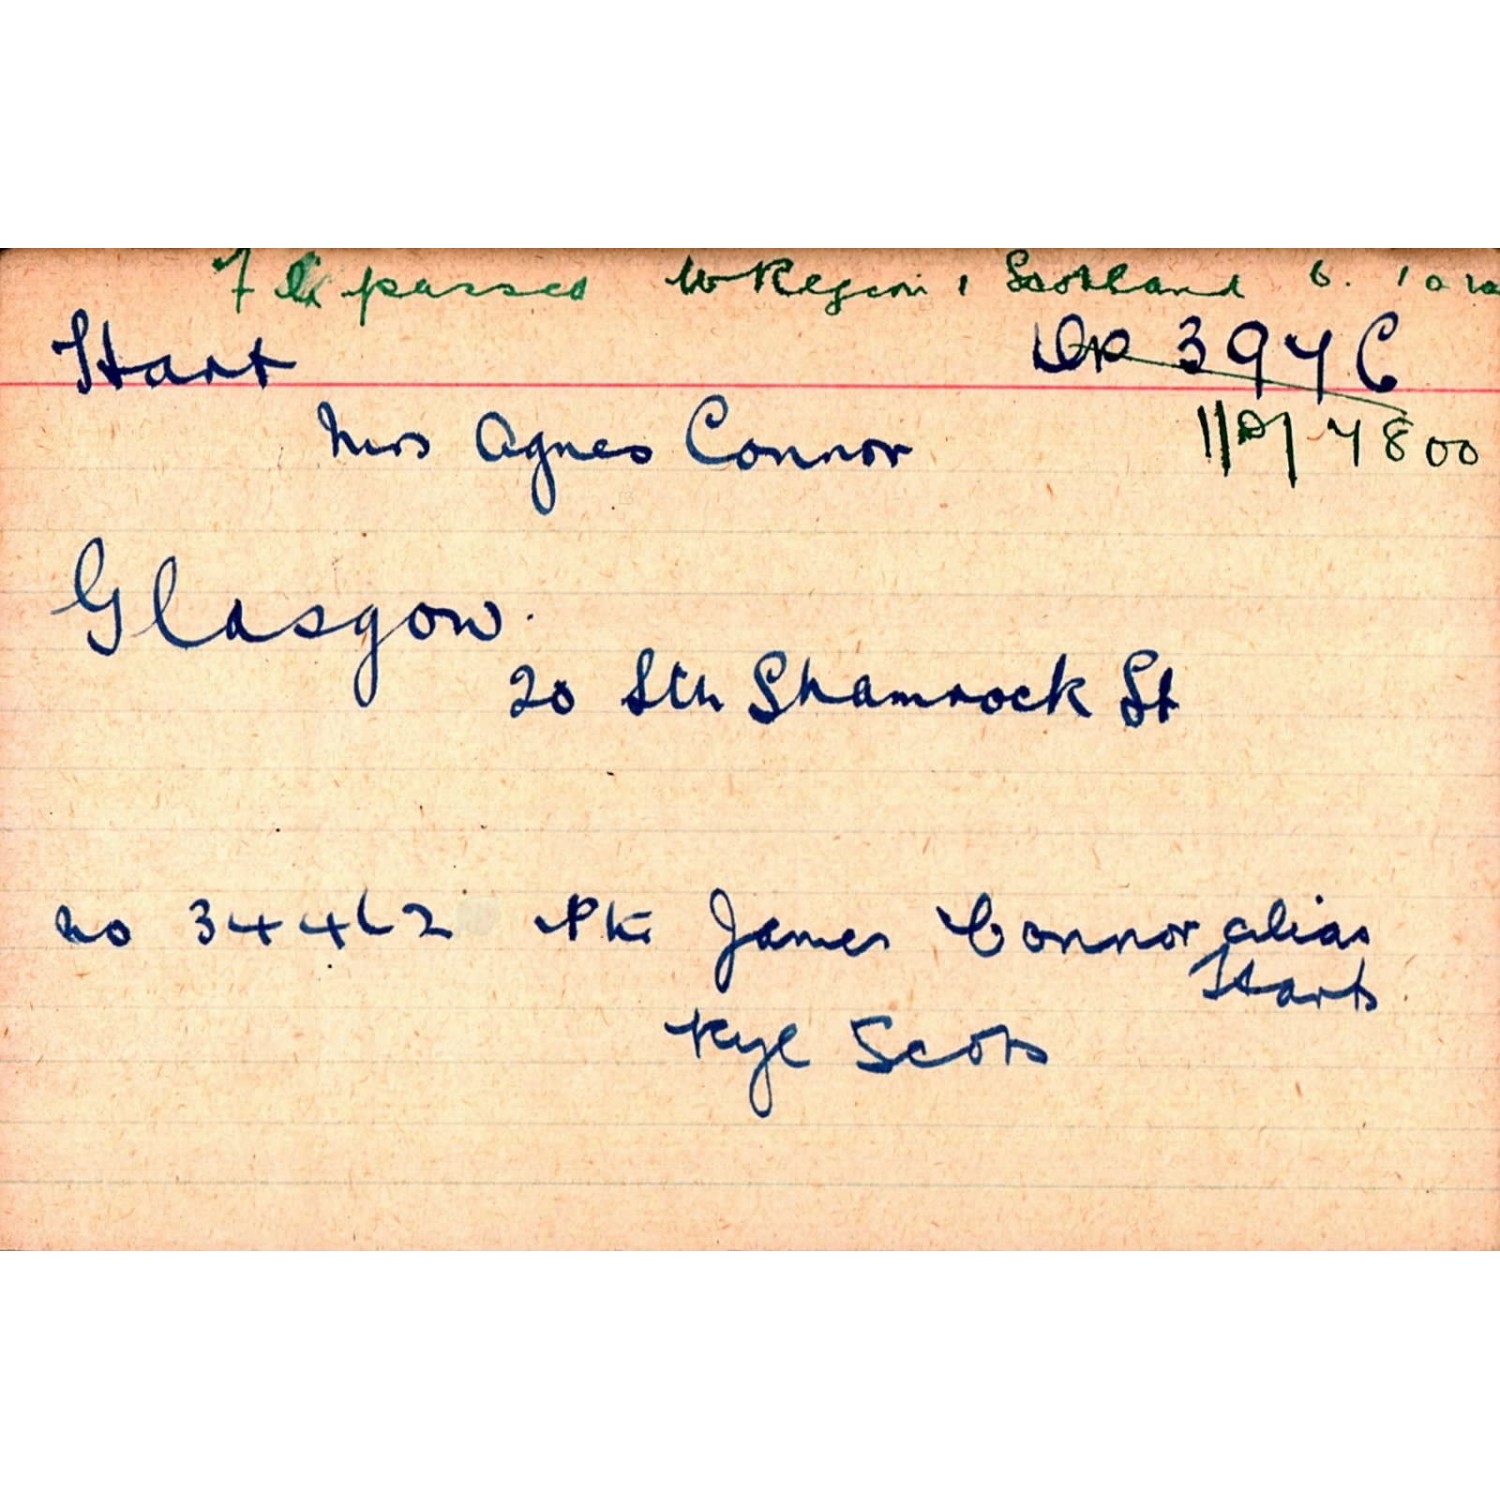 passed to Region 1 Scotland 6.
Hart 394C
Mrs Agnes Connor 4800
Glasgow.
20 Sth Shamrock St
no 34462 Pte James Connor alias
Hart
Kyl Scots